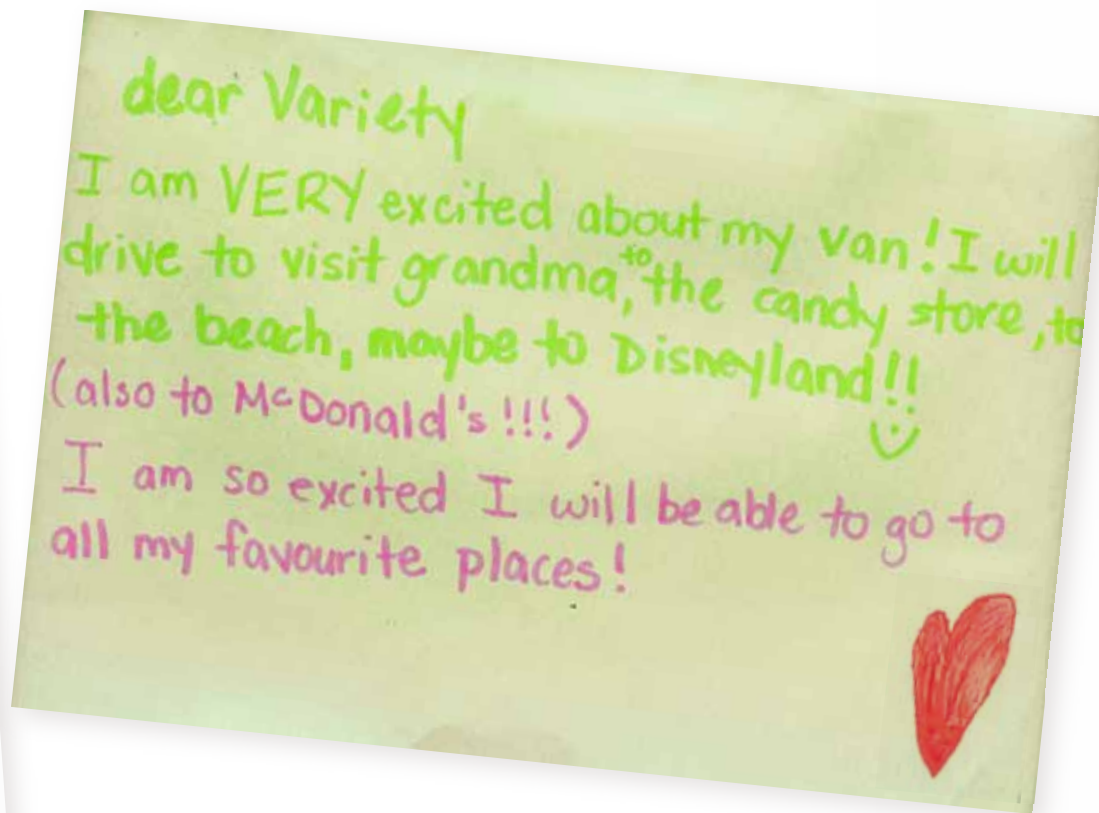 dear Variety
I am VERY excited about my van! I will
drive to visit grandma, to the candy store, to
the beach, maybe to Disneyland!!
(also to McDonald's!!!)
I am so excited I will be able to go to
all my favourite places!